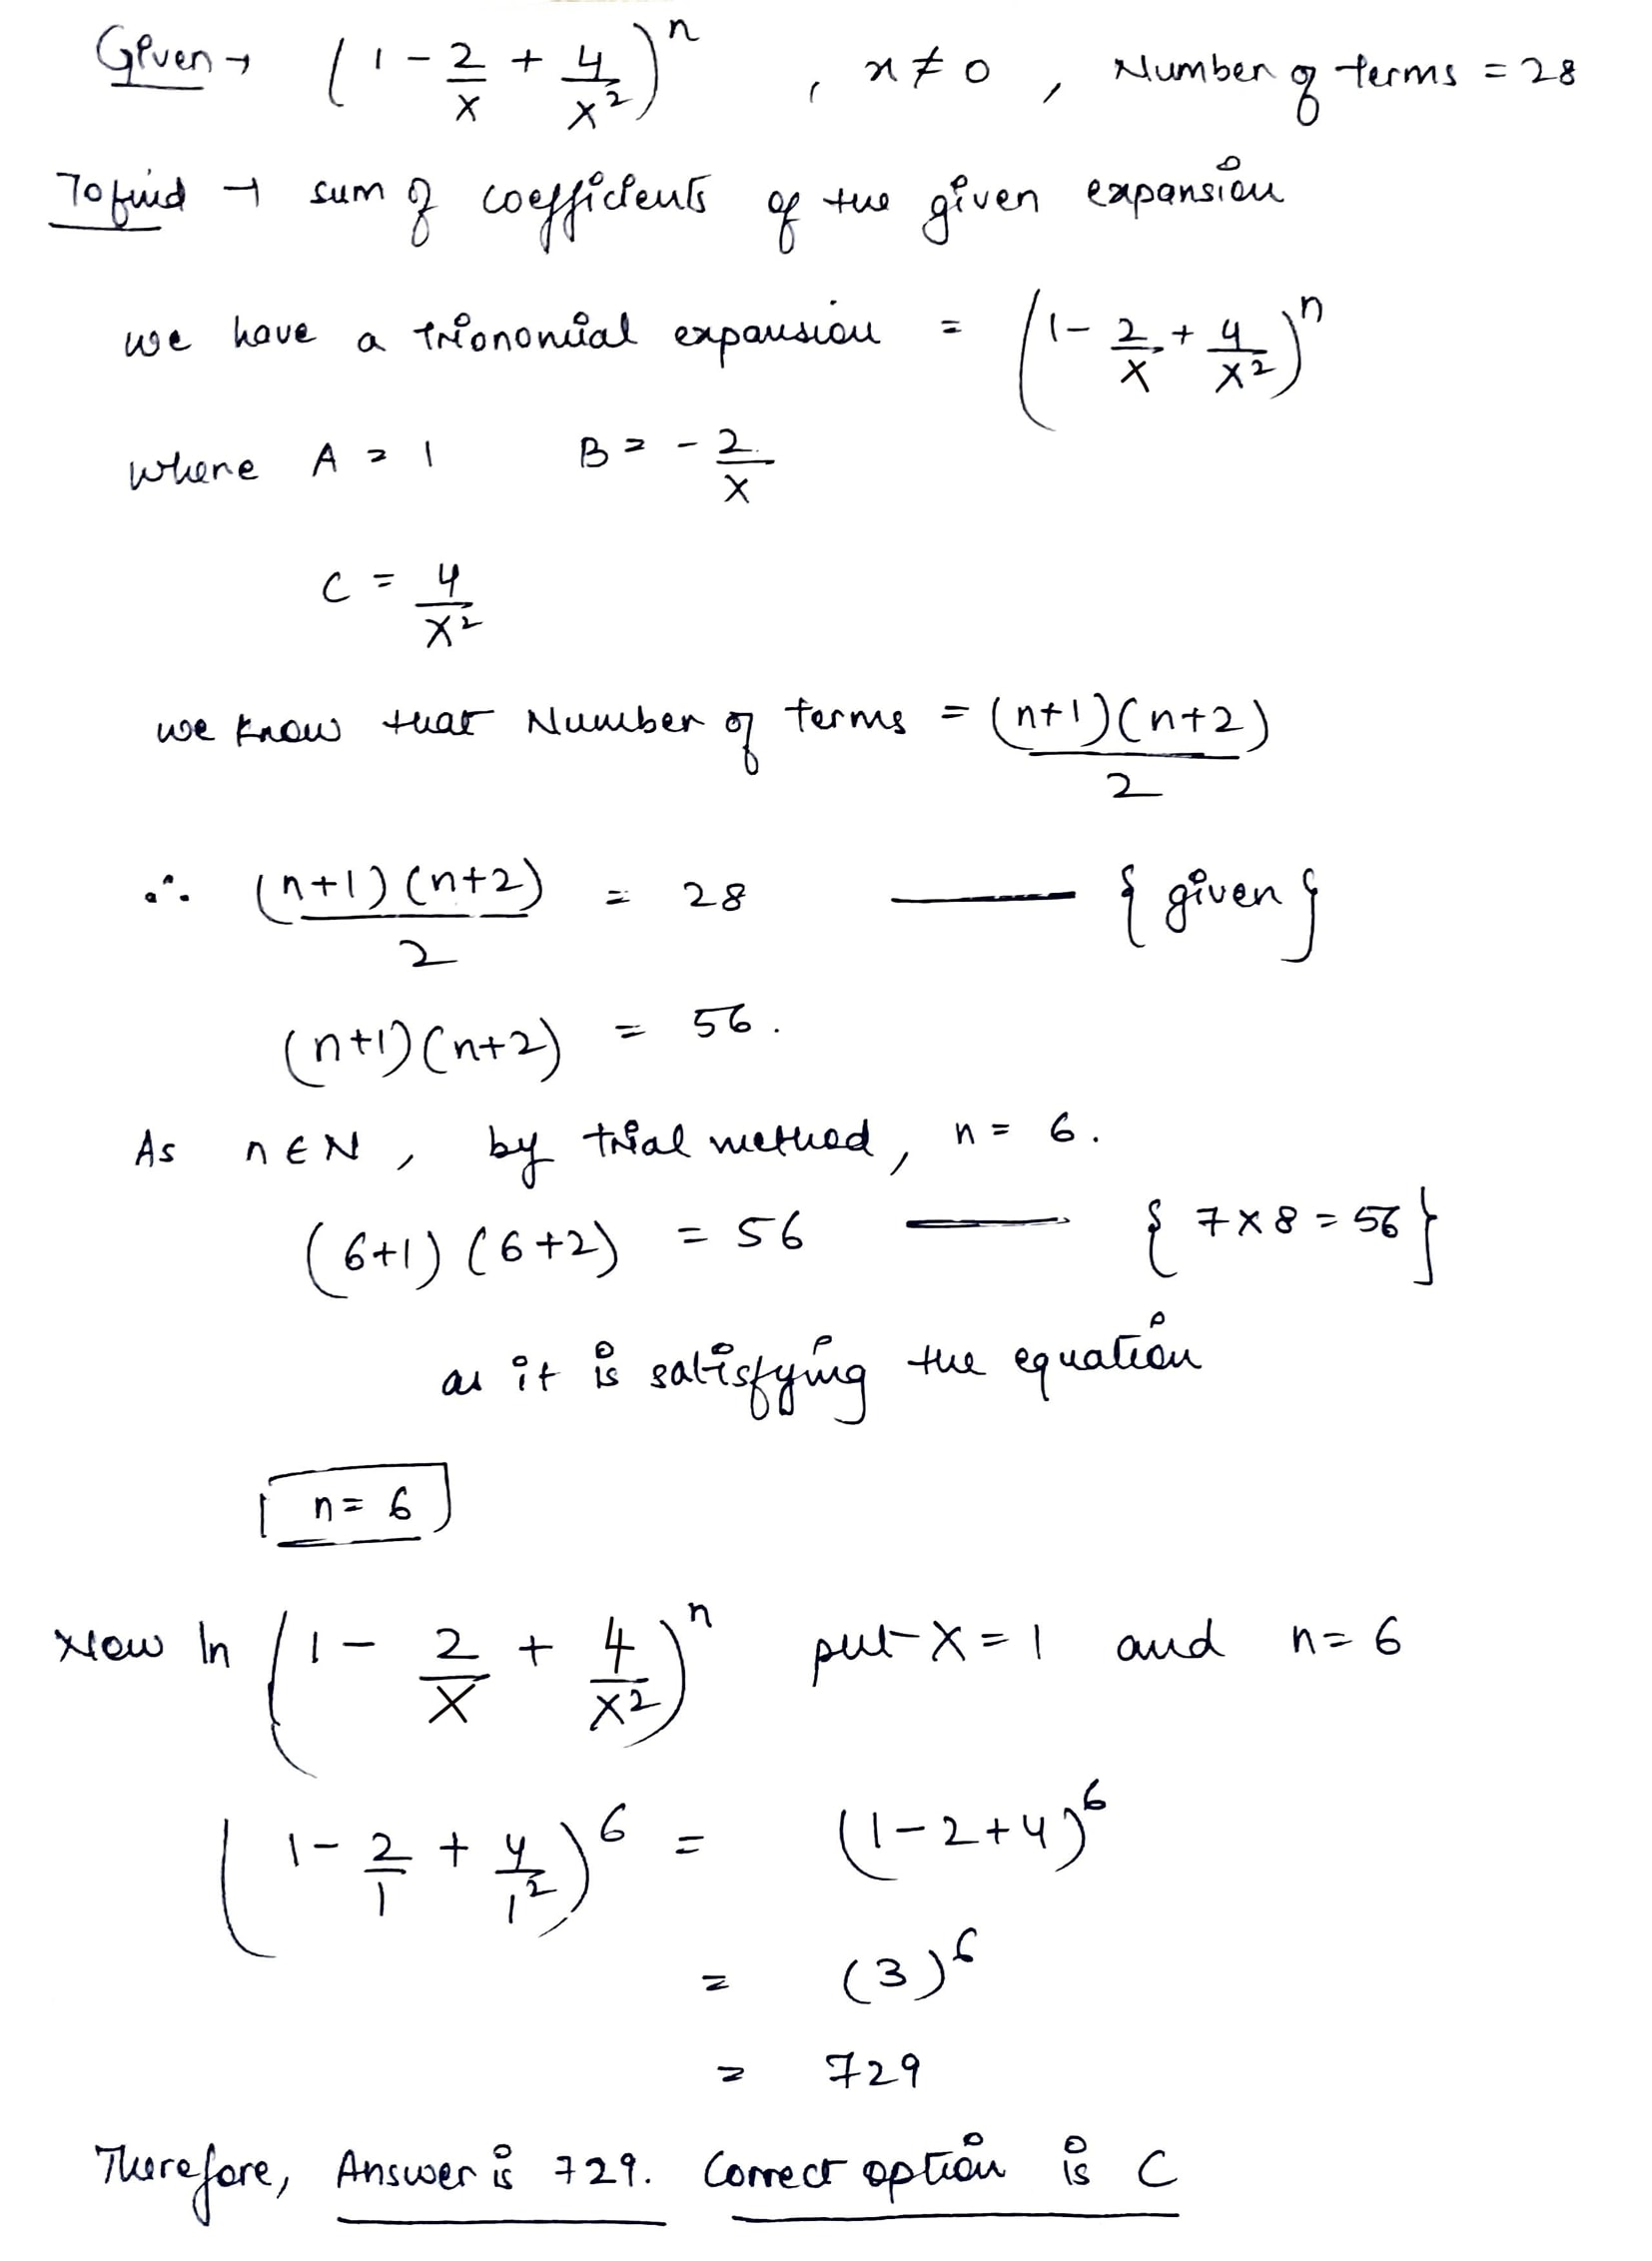 Given → (1 - 2/x + 4/x²)ⁿ , x ≠ 0 , Number of terms = 28
To find → sum of coefficients of the given expansion
we have a trionomial expansion = (1 - 2/x + 4/x²)ⁿ
where A = 1 B = - 2/x
C = 4/x²
we know that Number of terms = (n+1)(n+2)/2
∴ (n+1)(n+2)/2 = 28 —— {given}
(n+1)(n+2) = 56.
As n ∈ N , by trial method, n = 6.
(6+1)(6+2) = 56 —— {7×8 = 56}
as it is satisfying the equation
n = 6
Now In (1 - 2/x + 4/x²)ⁿ put x = 1 and n = 6
(1 - 2/1 + 4/1²)⁶ = (1-2+4)⁶
= (3)⁶
= 729
Therefore, Answer is 729. Correct option is C